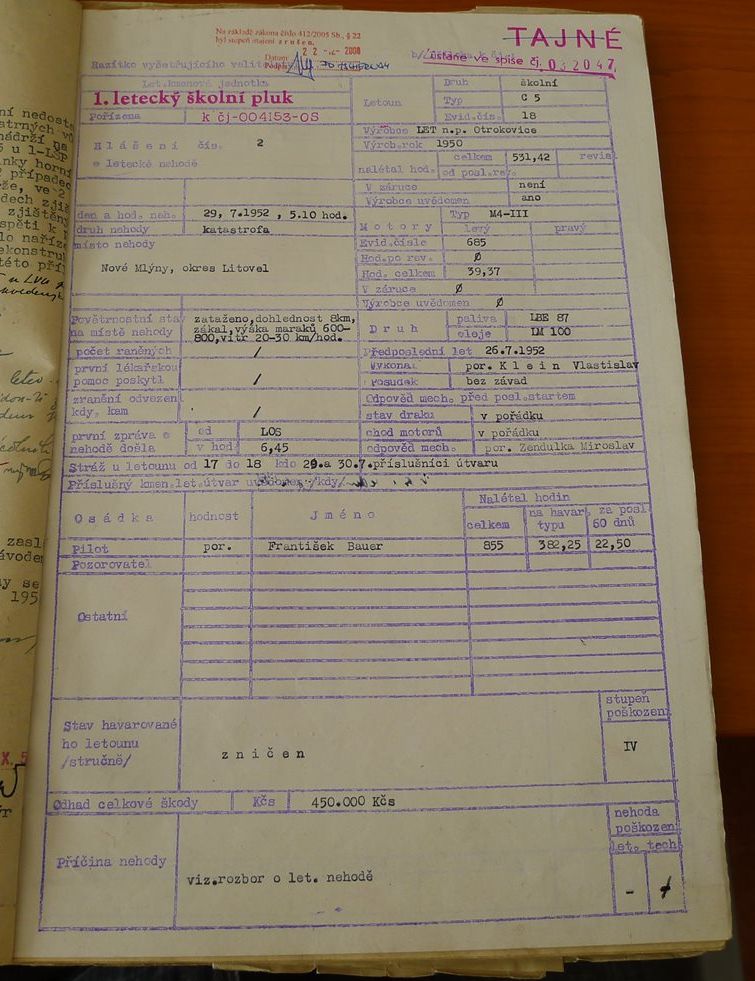 Na základě zákona číslo 412/2005 Sb., § 22
byl stupeň utajení zrušen.
Datum 22 -02- 2008
Podpis
TAJNÉ
ústane ve spise čj. 032047
Razítko vyšetřujícího velitel
Let.kmenová jednotka
1. letecký školní pluk
Pořízena k čj-004153-OS
Hlášení čís. 2
o letecké nehodě
Letoun
Druh školní
Typ C 5
Evid.čís. 18
Výrobce LET n.p. Otrokovice
Výrob.rok 1950
nalétal hod. celkem 531,42 revis
od posl.rev.
V záruce není
Výrobce uvědomen ano
den a hod. neh. 29. 7.1952 , 5.10 hod.
druh nehody katastrofa
místo nehody
Nové Mlýny, okres Litovel
Motory Typ M4-III
levý pravý
Evid.číslo 685
Hod.po rev. Ø
Hod. celkem 39,37
V záruce Ø
Výrobce uvědomen Ø
Povětrnostní stav
na místě nehody
zataženo,dohlednost 8km,
zákal,výška maraků 600-
800,vítr 20-30 km/hod.
Druh paliva LBE 87
oleje LM 100
počet raněných /
první lékařskou
pomoc poskytl /
zranění odvezeni
kdy, kam /
první zpráva o
nehodě došla
od LOS
v hod. 6,45
Předposlední let 26.7.1952
Vykonal por. Klein Vlastislav
Posudek bez závad
Odpověd mech. před posl.startem
stav draku v pořádku
chod motorů v pořádku
odpověd mech. por. Zendulka Miroslav
Stráž u letounu od 17 do 18 kdo 29.a 30.7.příslušníci útvaru
Příslušný kmen.let.útvar uvědomen /kdy/
Osádka hodnost Jméno
Nalétal hodin
celkem na havar. typu za posl. 60 dnů
Pilot por. František Bauer 855 382,25 22,50
Pozorovatel
Ostatní
Stav havarované
ho letounu
/stručně/
zničen
stupeň
poškození
IV
Odhad celkové škody Kčs 450.000 Kčs
Příčina nehody
viz.rozbor o let. nehodě
nehoda
poškození
let. tech.
-